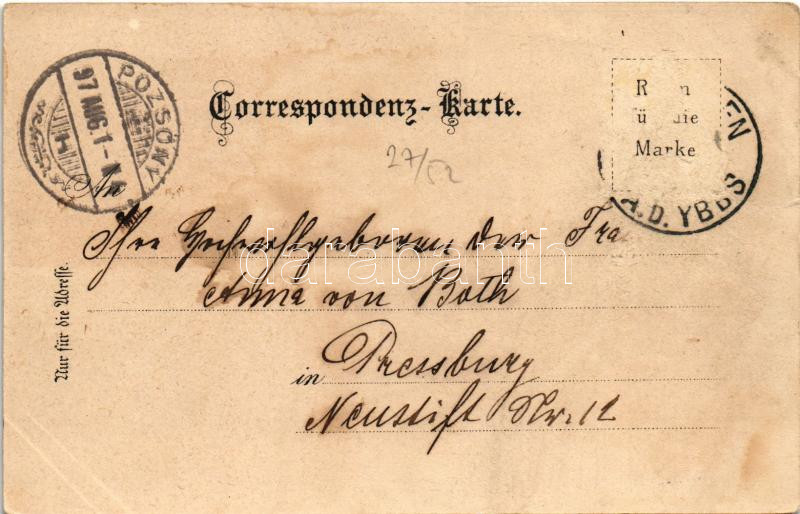 Correspondenz-Karte.
POZSONY
97 AUG. 1
27/52
R n
ü die
Marke
EN
A.D. YBBS
An
Ihre Hochwohlgeboren der Frau
Anna von Both
in Pressburg
Neustift Nr. 12
Nur für die Adresse.
darabanth